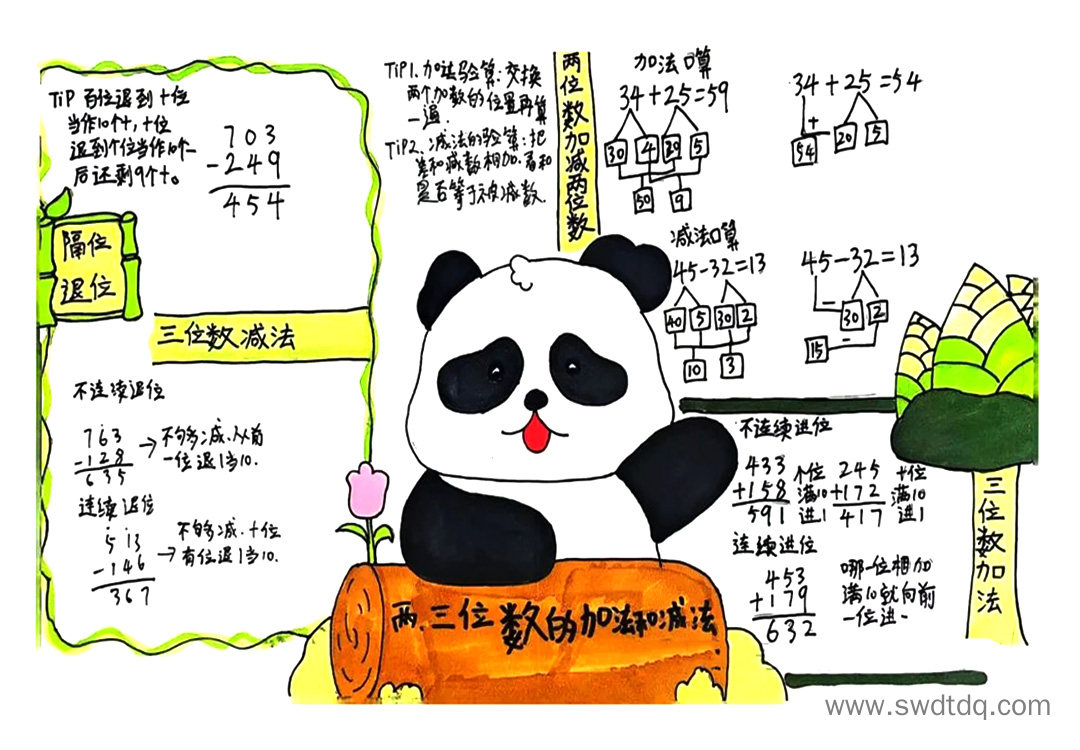 TiP 百位退到十位
当作10个十,十位
退到个位当作10个一
后还剩9个十。
703
-249
454
隔位
退位
三位数减法
不连续退位
763
-128
635
→不够减.从前
一位退1当10.
连续退位
513
-146
367
不够减.十位
→有位退1当10.
TiP1.加法验算:交换
两个加数的位置再算
一遍.
TiP2.减法的验算:把
差和减数相加.看和
是否等于被减数.
两位数加减两位数
加法口算
34+25=59
30 4 20 5
50 9
34+25=54
+
20 5
54
减法口算
45-32=13
40 5 30 2
10 3
45-32=13
-
30 2
15 -
不连续进位
433
+158
591
个位
满10
进1
245
+172
417
十位
满10
进1
连续进位
453
+179
632
哪一位相加
满10就向前
一位进一
三位数加法
两、三位数的加法和减法
www.swdtdq.com